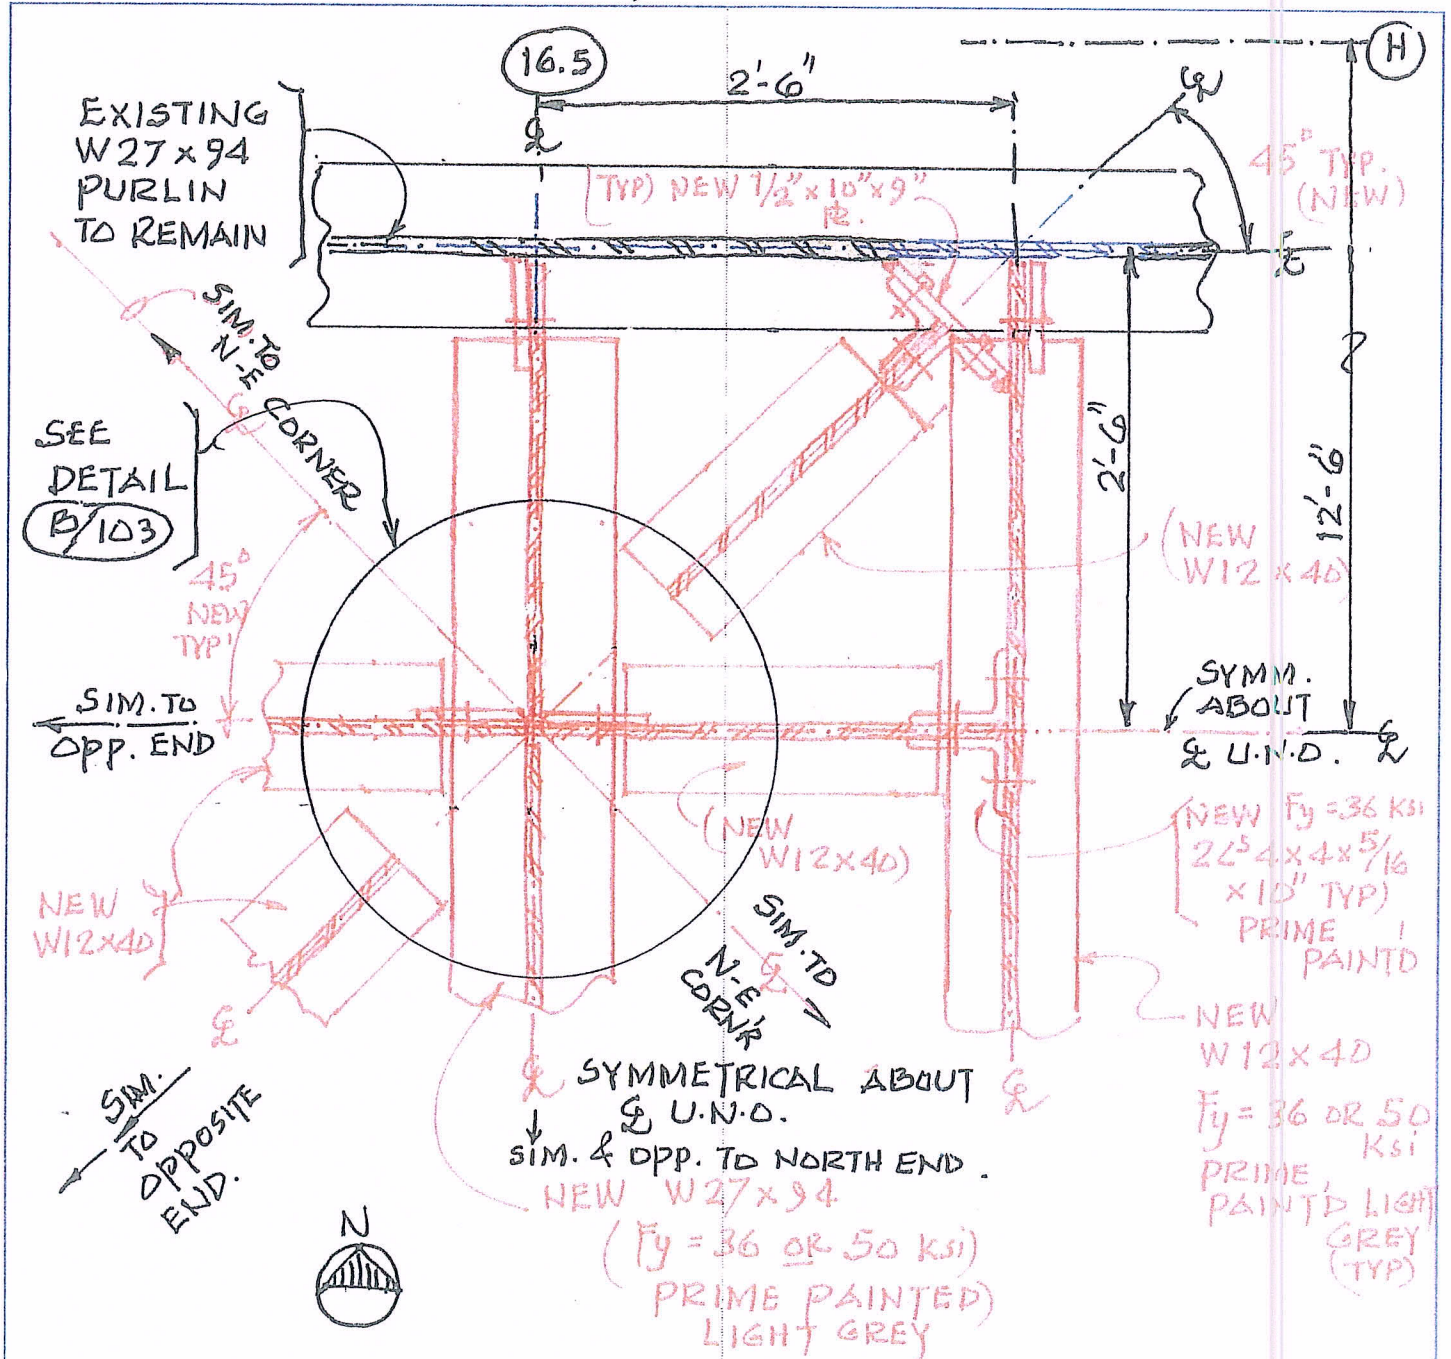 16.5
H
2'-6"
℄
EXISTING
W27 x 94
PURLIN
TO REMAIN
℄
(TYP) NEW 1/2" x 10" x 9"
PL.
45° TYP.
(NEW)
℄
SIM. TO
N-E CORNER
℄
SEE
DETAIL
B/103
2'-6"
12'-6"
(NEW
W12 x 40)
45°
NEW
TYP
SIM. TO
OPP. END
SYMM.
ABOUT
℄ U.N.O.
℄
(NEW
W12x40)
NEW Fy = 36 KSI
2Ls 4 x 4 x 5/16
x 10" TYP)
PRIME
PAINTD
NEW
W12x40
℄
SIM. TO
℄
N-E
CORN'R
NEW
W12 x 40
Fy = 36 OR 50
Ksi
PRIME
PAINT'D LIGHT
GREY
(TYP)
SIM.
TO
OPPOSITE
END.
℄
℄
SYMMETRICAL ABOUT
℄ U.N.O.
SIM. & OPP. TO NORTH END.
NEW W27 x 94
(Fy = 36 OR 50 Ksi)
PRIME PAINTED)
LIGHT GREY
N